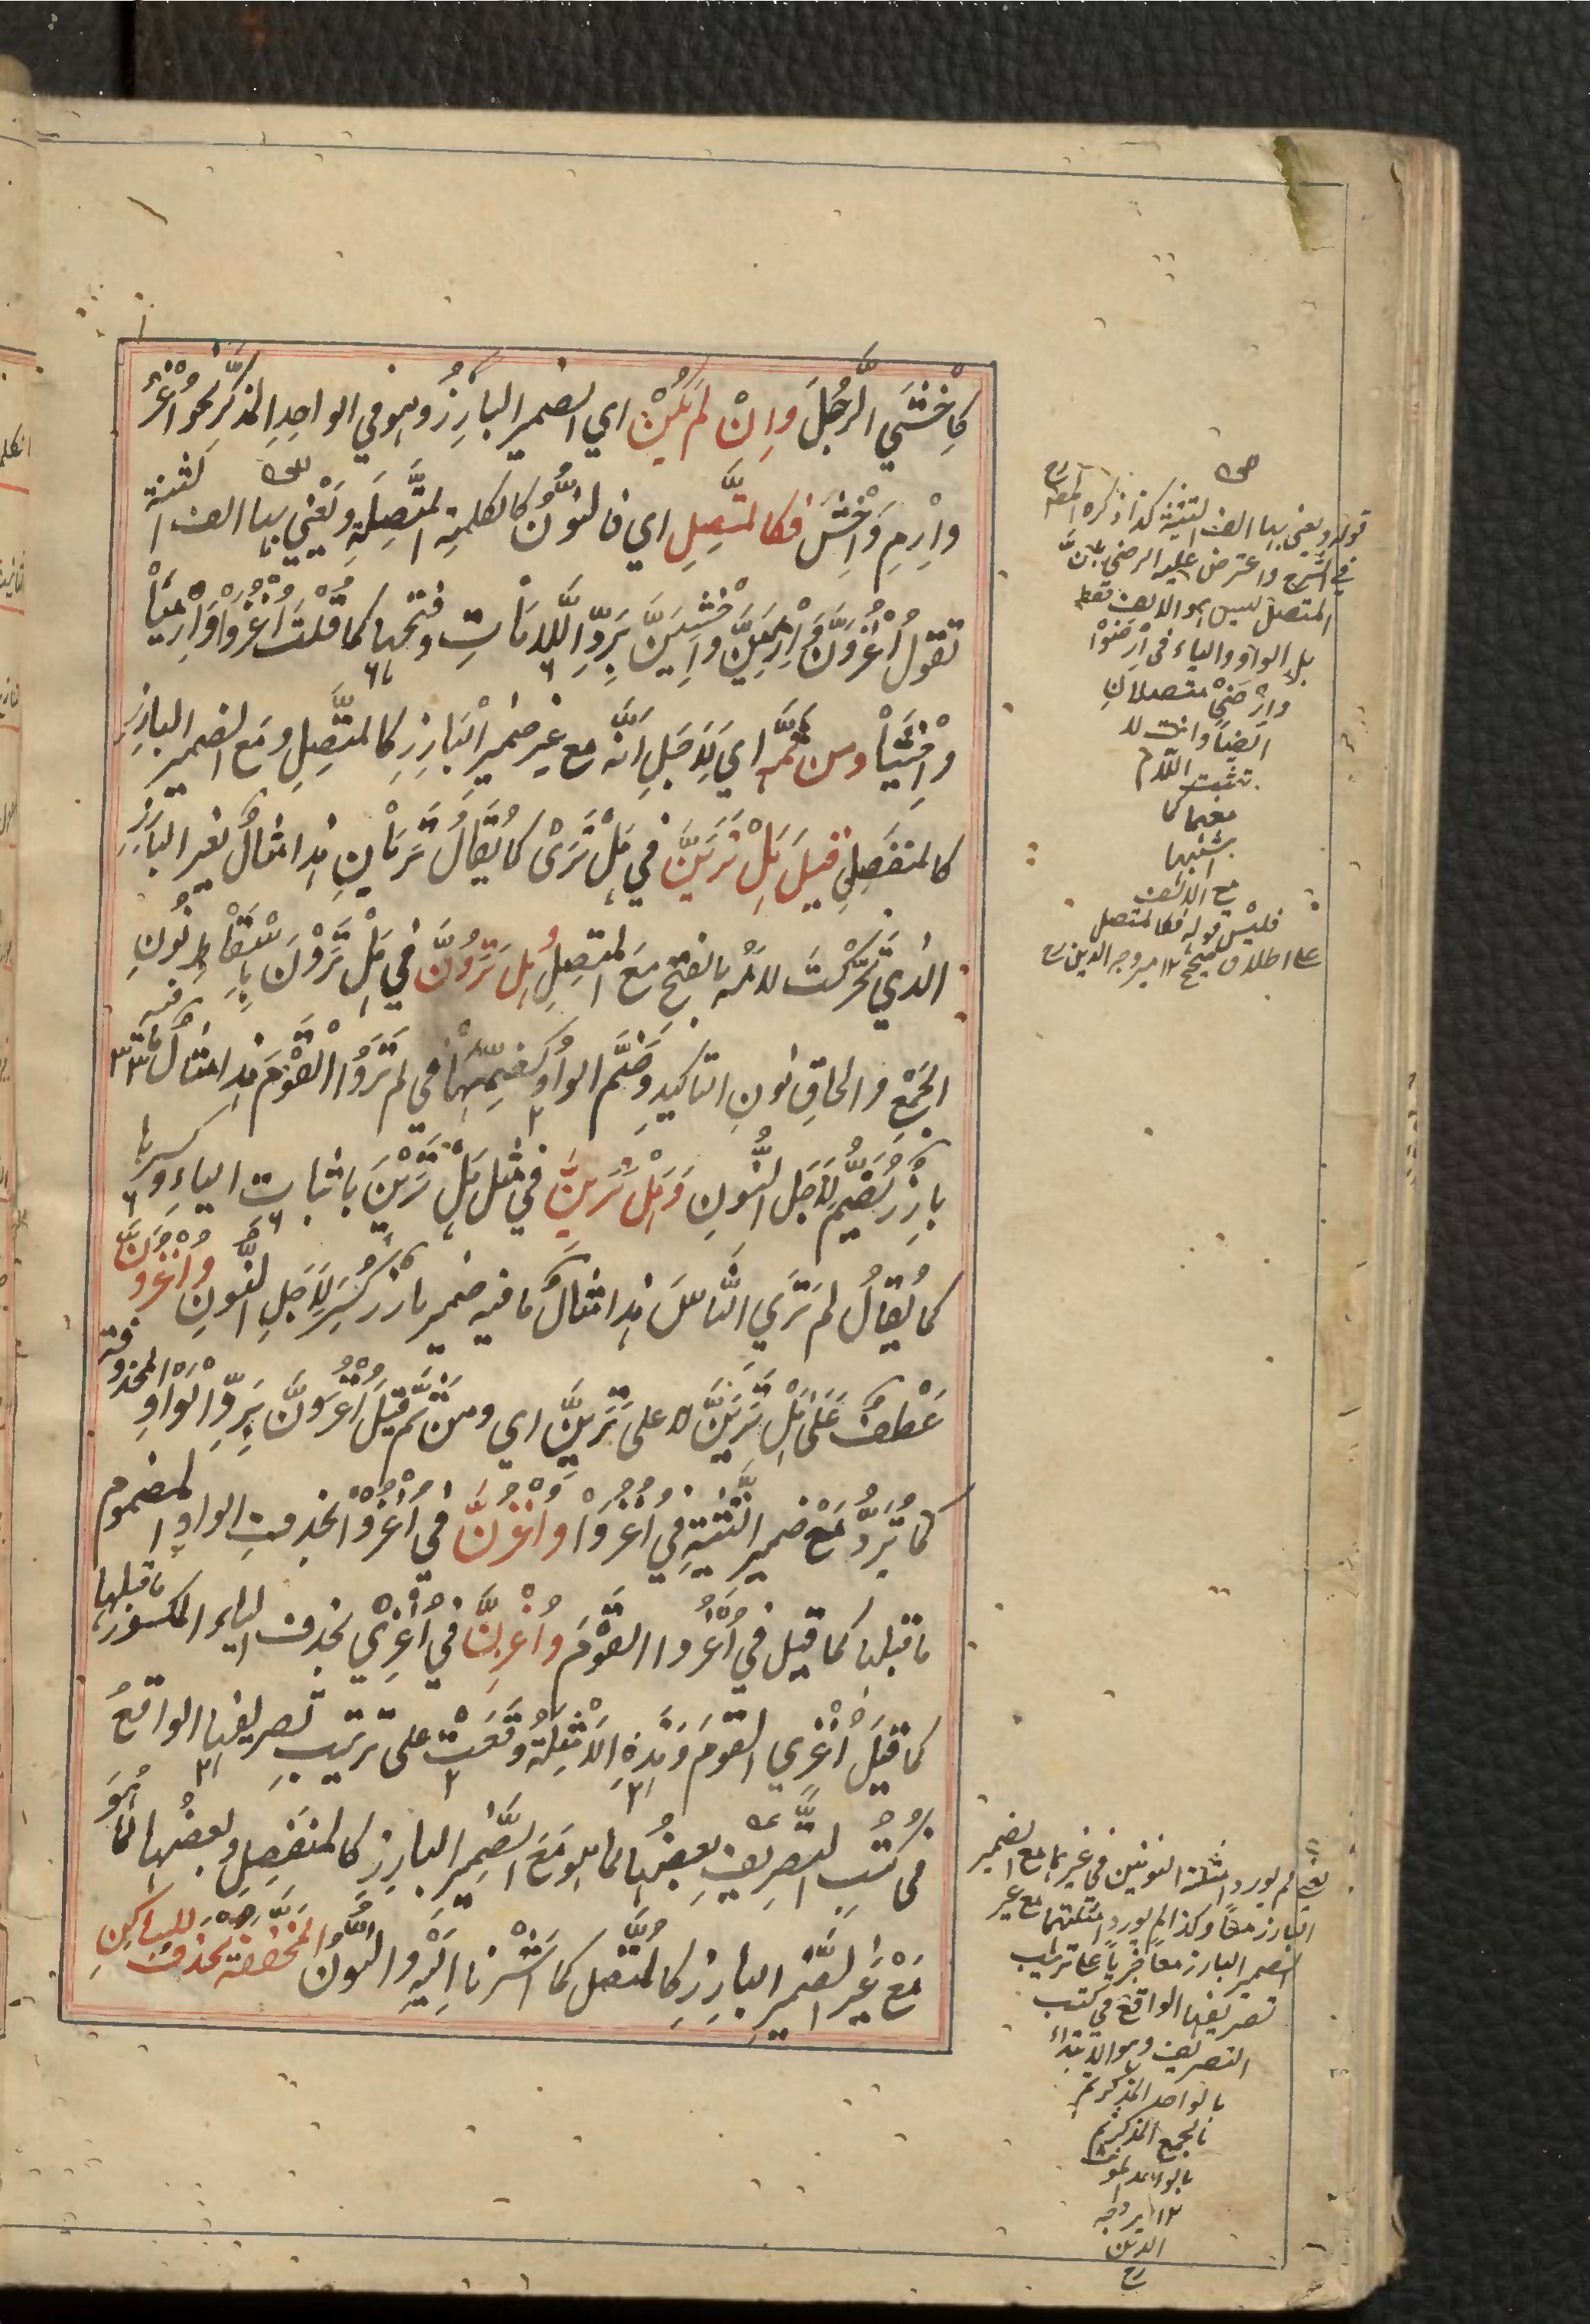 كاِخْشَيِ الرَّجُلَ وَاِنْ لَمْ يَكُنْ اي الضمير البارِزُ وهو في الواحِدِ المذكَّرِ نحوُ اُغْزُ
وارْمِ وَاخْشَ فكالمتَّصِلِ اي فالنُّونُ كالكلمةِ المتَّصِلَةِ ويَعْنِي بها الف التثنية
تقولُ اُغْزُوَنَّ وَارْمِيَنَّ واخْشَيَنَّ بِرَدِّ اللّاماتِ وفتحِها كما قُلْتَ اُغْزُوَا وَارْمِيَا
واخْشَيَا ومن ثَمَّ اي لِاَجَلِ اَنَّه مع غيرِ ضميرِ البَارِزِ كالمتَّصِلِ ومَع الضميرِ البارِزِ
كالمنفَصِلِ قيلَ هَلْ تَرَيَنَّ في هَلْ تَرَى كما يُقالُ تَرَيَانِ هذا مثالُ لغير البارزِ
الذي تحرَّكَتْ لامُه بالفتح مَعَ المتصِلِ وهل تَرَوُنَّ في هَلْ تَرَوْنَ بِاِسْقَاطِ نُونِ
الجَمْعِ والحاقِ نونِ التاكيدِ وضَمِّ الواوِ كضمِّها في لم تَرَوُا القَوْمَ هذا مثالُ ما فيه ضمير
بارِزٌ يُضَمُّ لِاَجَلِ النُّونِ وَهَلْ تَرَيِنَّ في مثل هَلْ تَرَيْنَ باثباتِ الياءِ وكسرِها
كما يُقالُ لم تَرَيِ النَّاسَ هذا مثالُ ما فيه ضمير بارز كُسِرَ لِاَجَلِ النُّونِ وَاُغْزُوَنَّ
عَطْفٌ عَلَى هَلْ تَرَيَنَّ لا على تَرَيِنَّ اي ومِنْ ثَمَّ قيلَ اُغْزُوَنَّ بِرَدِّ الْوَاوِ المحذوفة
كما تُرَدُّ مَعْ ضمير التَّثْنِيةِ في اُغْزُوَا وَاُغْزُنَّ في اُغْزُوْا بحذفِ الواوِ المضموم
ما قبلها كما قيل في اُغْزُوا القَوْمَ وَاُغْزِنَّ في اُغْزِيْ بحذف الياء المكسور ما قبلها
كما قيلَ اُغْزِي القومَ وهذه الامْثِلَةُ وقَعَتْ على ترتيبِ تصريفِها الواقعُ
في كُتُبِ التَّصرِيفِ بعضُها لما هو مَعَ الضَّميرِ البارِزِ كالمنفَصِلِ وبعضُها لِما هُوَ
مَعْ غَيرِ الضَّميرِ البارِزِ كالمُتَّصل كما اَشَرْنا اِلَيْهِ والنون المخففة تُحذف للساكنِ
قوله ويعني بها الف التثنية كذا ذكره المصـ رح
في الشرح واعترض عليه الرضي بانَّ
المتصل ليس هو الالف فقط
بل الواو والياء في اِرْضَوْا
وارْضَيْ متصلان
ايضاً وانت لا
تثبت اللام
معهما كما
تثبتها
مع الالف
فليس قوله فكالمتصل
على اطلاقه بصحيح ١٢ مير وجه الدين رح
يعني لم يورد امثلة النونين في غيرهما مع الضمير
البارز معاً وكذا لم يورد امثلتهما مع غير
الضمير البارز معاً جرياً على ترتيب
تصريفها الواقع في كتب
التصريف وهو الابتداء
بالواحد المذكر ثم
بالجمع المذكر ثم
بالواحد المؤنث
١٢ مير وجه
الدين
رح